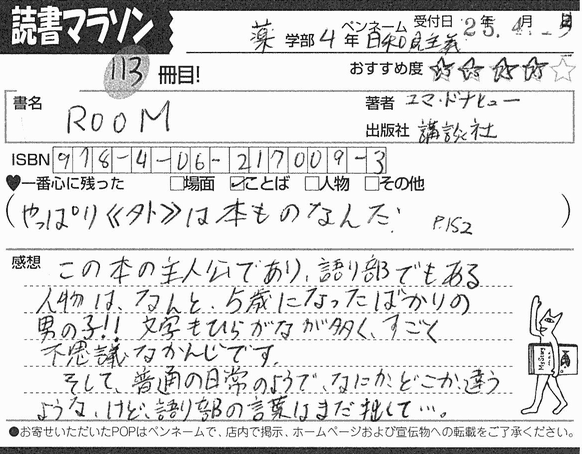 読書マラソン
薬 学部 4 年 ペンネーム 日和見主義 受付日 25. 4月
113 冊目!
おすすめ度 ★★★★☆
書名 ROOM
著者 エマ・ドナヒュー
出版社 講談社
ISBN 978-4-06-217009-3
♥一番心に残った □場面 ☑ことば □人物 □その他
(やっぱり《外》は本ものなんだ. P.152)
感想
この本の主人公であり、語り部でもある
人物は、なんと、5歳になったばかりの
男の子!! 文字もひらがなが多く、すごく
不思議なかんじです。
そして、普通の日常のようで、なにか、どこか、違う
ような、けど、語り部の言葉はまだ拙くて…。
●お寄せいただいたPOPはペンネームで、店内で掲示、ホームページおよび宣伝物への転載をご了承ください。